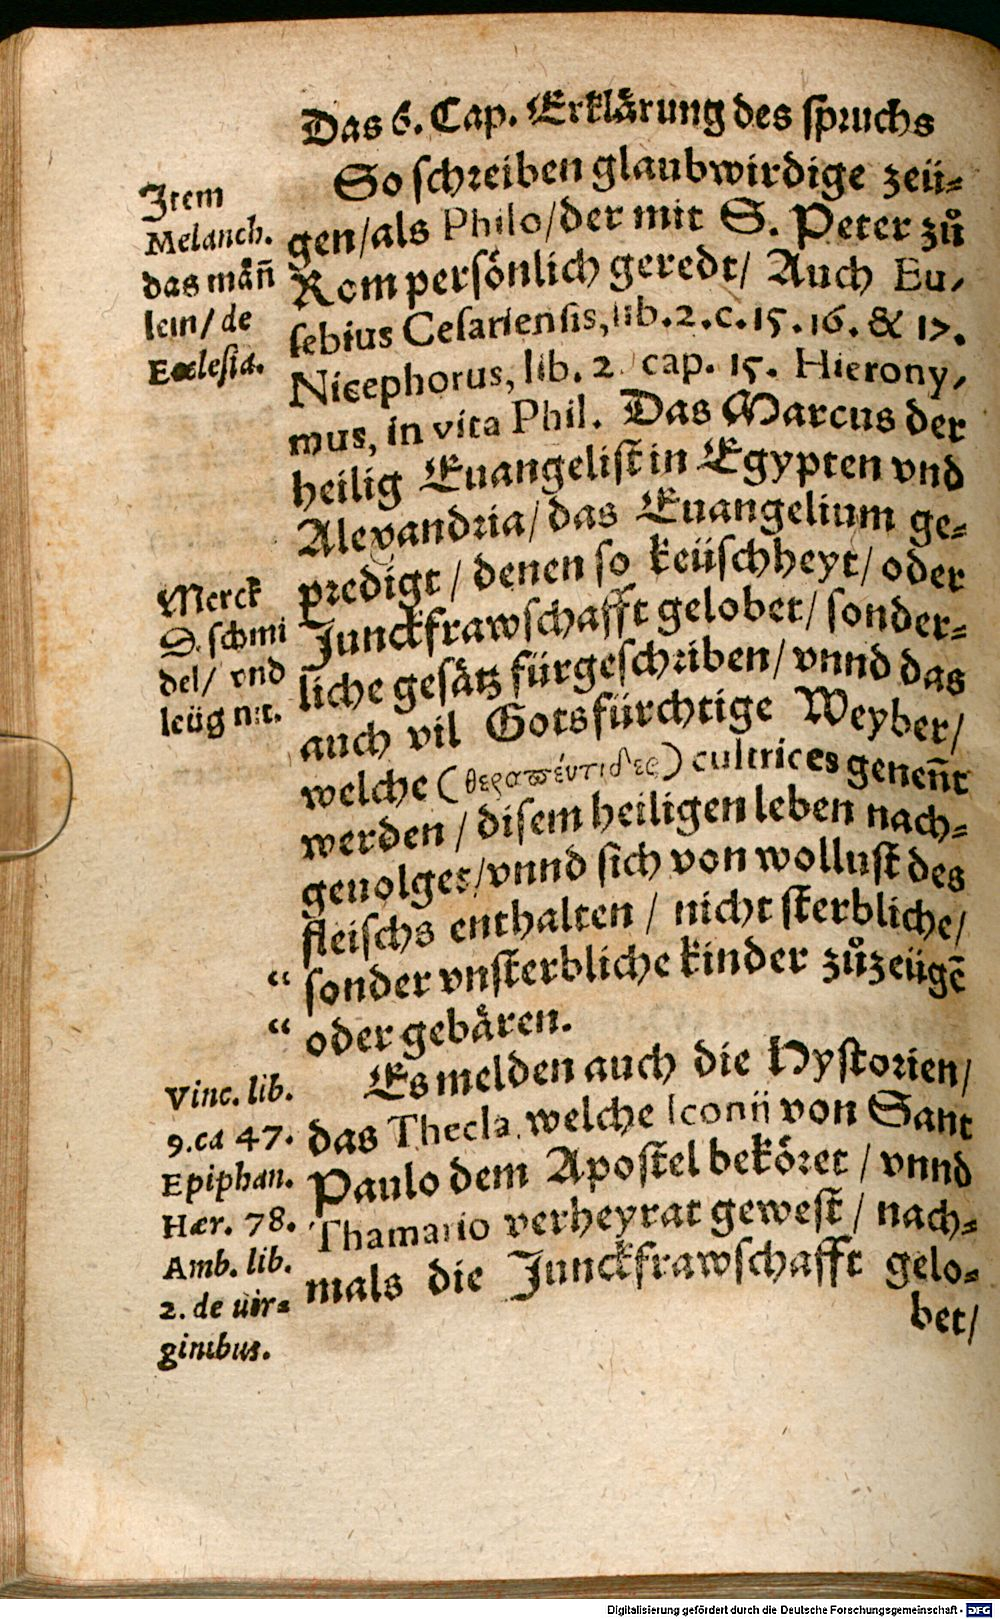 Das 6. Cap. Erklärung des spruchs
So schreiben glaubwirdige zeü-
gen/als Philo/der mit S. Peter zů
Rom persönlich geredt/ Auch Eu-
sebius Cesariensis, lib. 2. c. 15. 16. & 17.
Nicephorus, lib. 2 cap. 15. Hierony-
mus, in vita Phil. Das Marcus der
heilig Euangelist in Egypten vnd
Alexandria/das Euangelium ge-
predigt / denen so keüschheyt/ oder
Junckfrawschafft gelobet/ sonder-
liche gesätz fürgeschriben/ vnnd das
auch vil Gotsfürchtige Weyber/
welche (θεραπέντιδες) cultrices geneñt
werden / disem heiligen leben nach-
geuolget/vnnd sich von wollust des
fleischs enthalten / nicht sterbliche/
“ sonder vnsterbliche kinder zůzeügē
“ oder gebären.
Es melden auch die Hystorien/
das Thecla, welche Iconij von Sant
Paulo dem Apostel beköret / vnnd
Thamario verheyrat gewest / nach-
mals die Junckfrawschafft gelo-
bet/
Item
Melanch.
das mäñ
lein/ de
Ecclesia.
Merck
S. schmi
del/ vnd
leüg nit.
Vinc. lib.
9. ca 47.
Epiphan.
Hær. 78.
Amb. lib.
2. de uir-
ginibus.
Digitalisierung gefördert durch die Deutsche Forschungsgemeinschaft - DFG